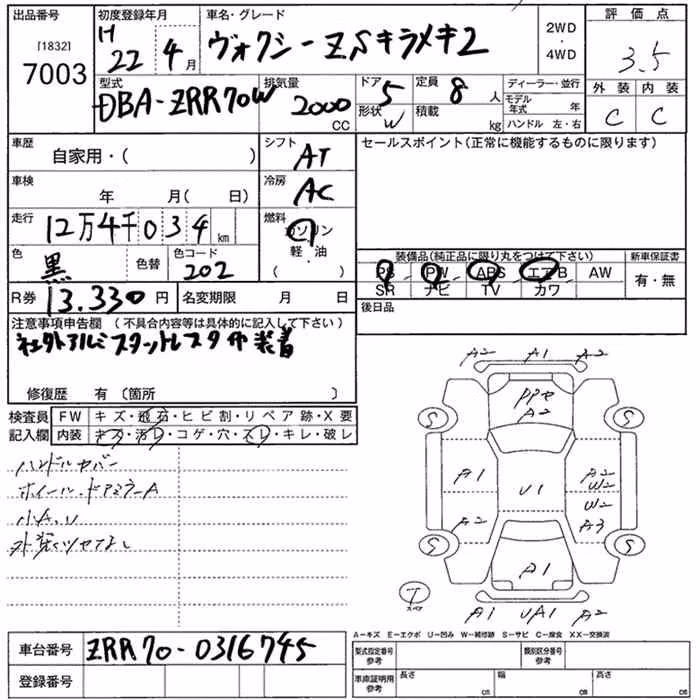 出品番号 初度登録年月 車名・グレード 評価点
[1832] H ヴォクシーZSキラメキ2 2WD・4WD 3.5
7003 22年 4月
外装 内装
型式 排気量 ドア 5 定員 8人 ディーラー・並行
DBA-ZRR70W 2000cc 形状 W 積載 kg モデル年式 年 C C
ハンドル 左・右
車歴 自家用・( ) シフト AT セールスポイント(正常に機能するものに限ります)
車検 年 月( 日) 冷房 AC
走行 12万4千034km 燃料 ガソリン
軽・油
( )
色 黒 色替 色コード 202
装備品(純正品に限り丸をつけて下さい) 新車保証書
PS PW ABS エアB AW 有・無
SR ナビ TV カワ
R券 13.330円 名変期限 月 日 後日品
注意事項申告欄 (不具合内容等は具体的に記入して下さい)
社外アルミスタットレスタイヤ装着
修復歴 有 (箇所 )
検査員 FW キズ・飛石・ヒビ割・リペア跡・X要
記入欄 内装 キズ・汚レ・コゲ・穴・スレ・キレ・破レ
ハンドルカバー
ホイール・ドアミラーA
小A.U
外装ツヤなし
A2 A1 A2
A2
S S
A1 U1 A2
W2
A2 W2
A3
S S
A1
T
スペア
A1 UA1 A2
A-キズ E-エクボ U-凹み W-補修跡 S-サビ C-腐食 XX-交換済
車台番号 ZRR70-0316745
登録番号
型式指定番号 参考 類別区分番号 参考
車庫証明用 参考 長さ cm 幅 cm 高さ cm